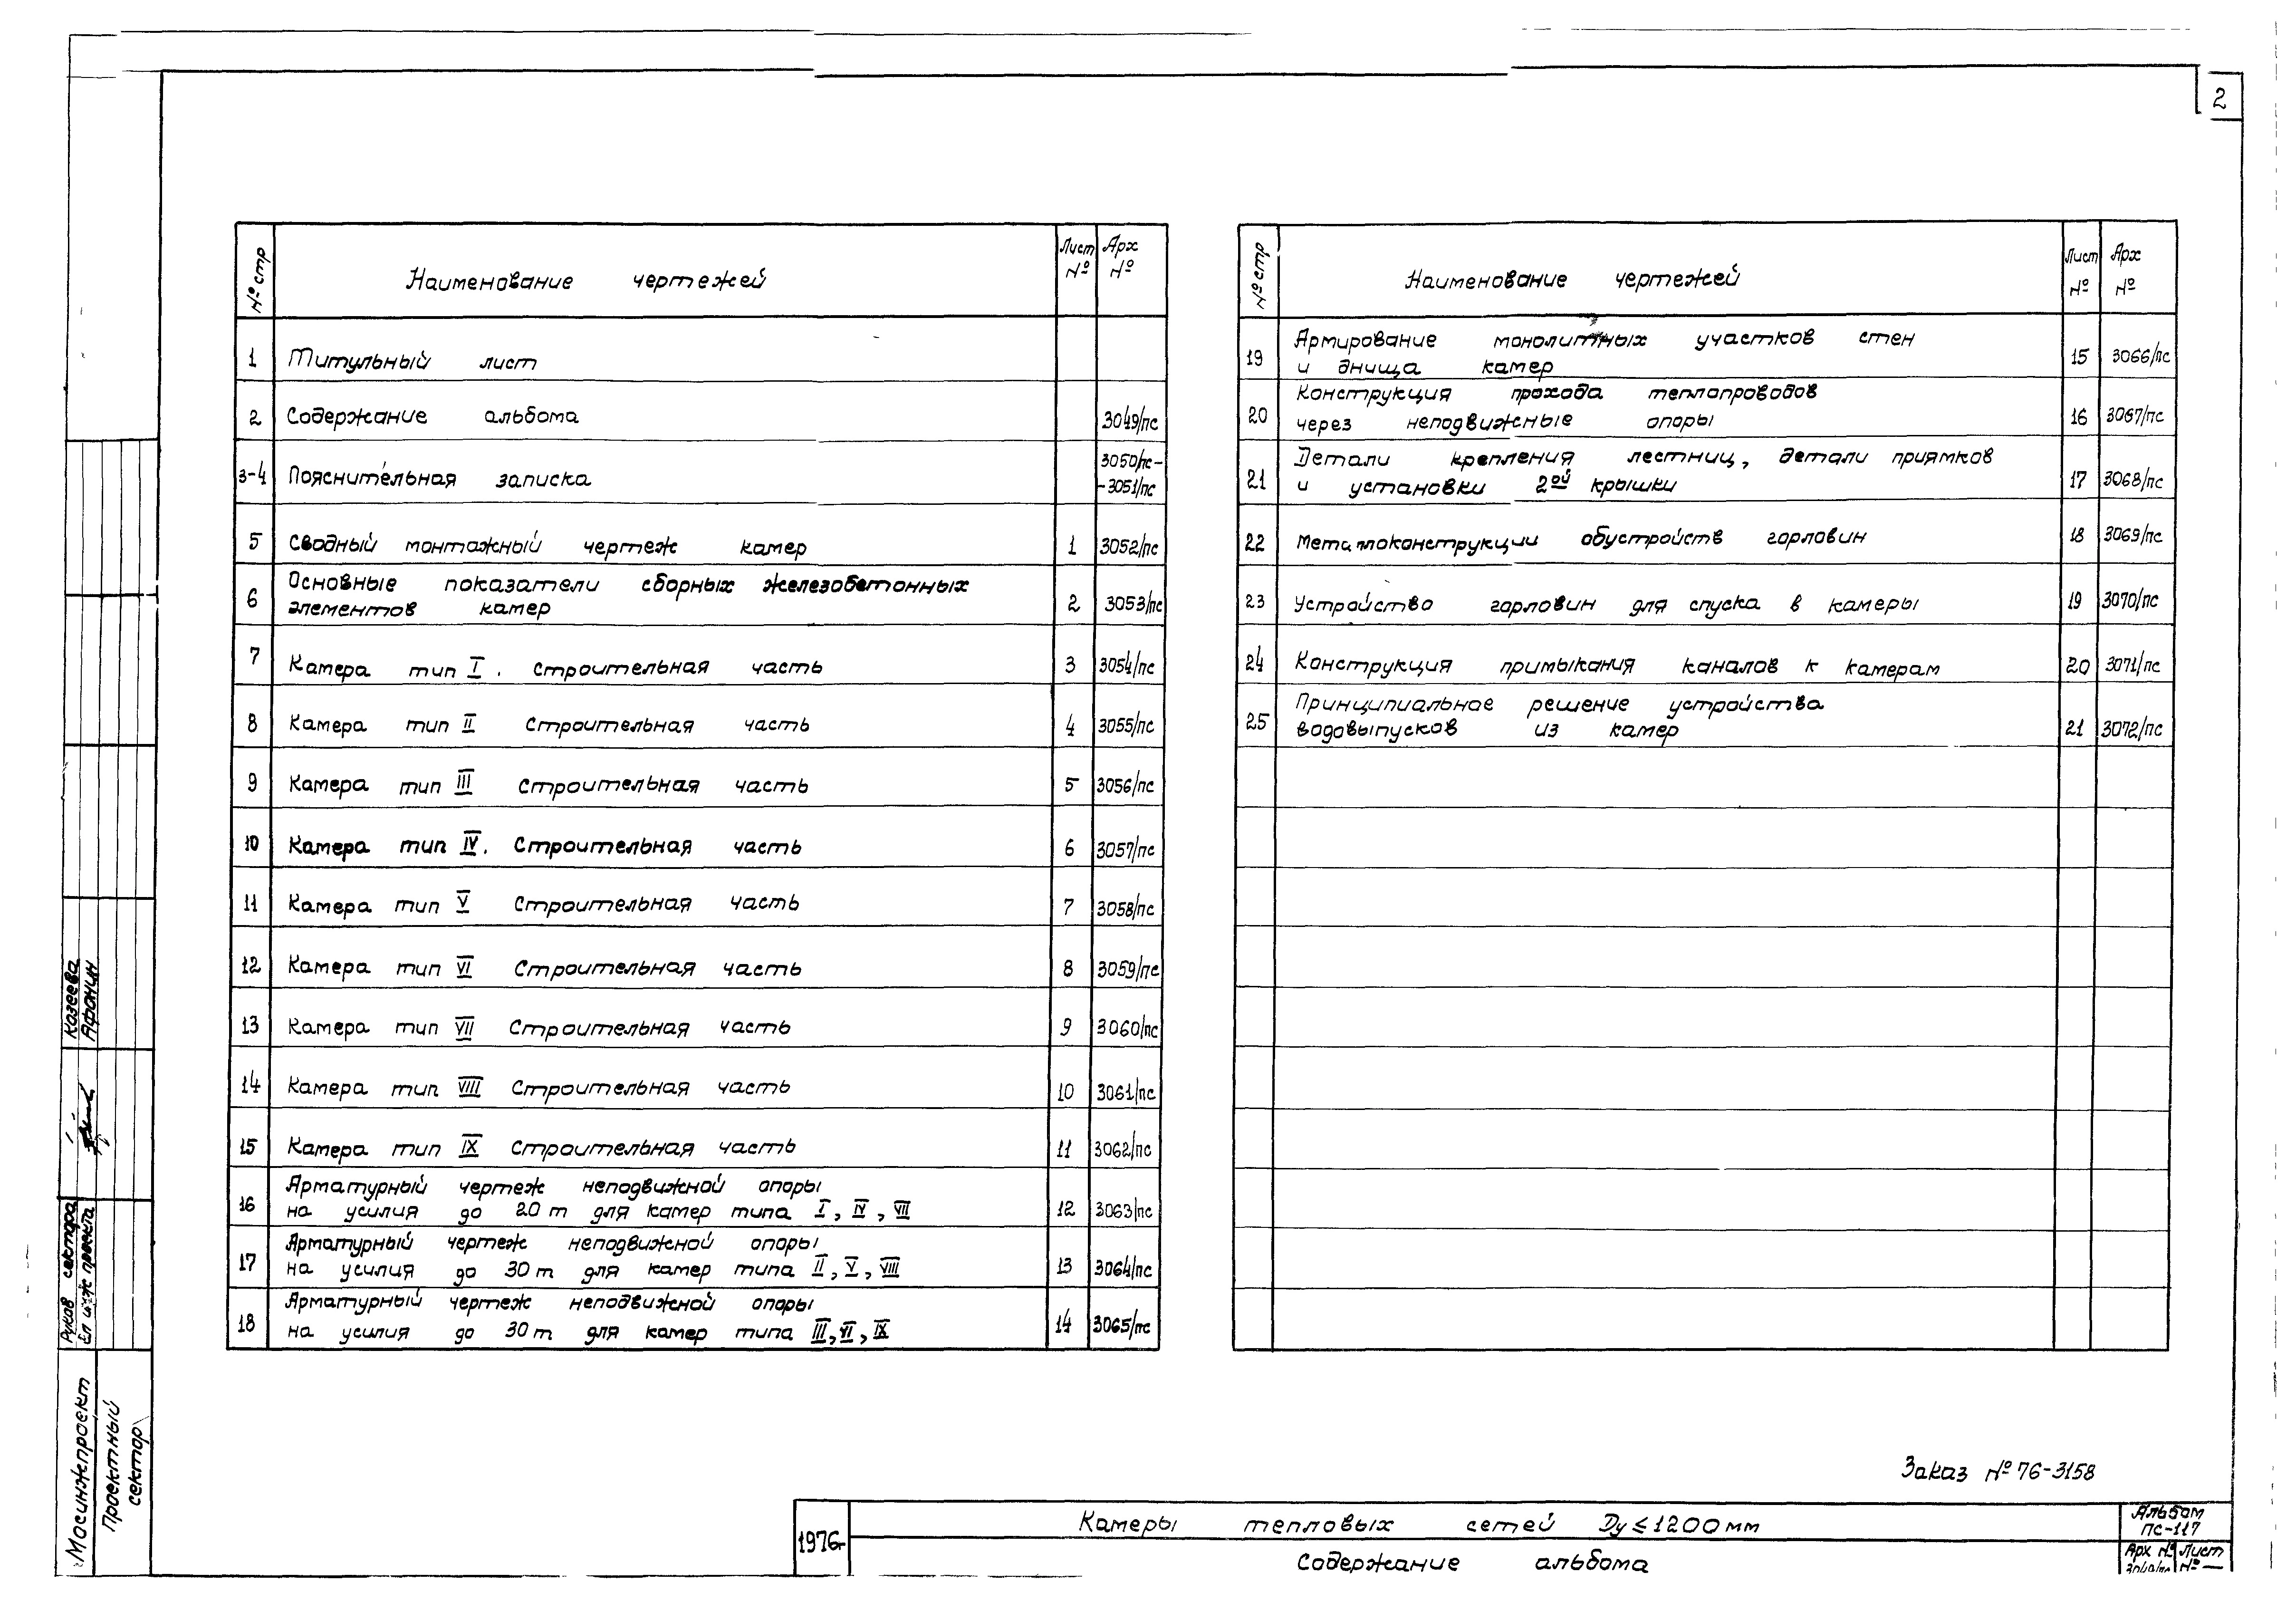 2
№ стр Наименование чертежей Лист № Арх №
1 Титульный лист
2 Содержание альбома 3049/пс
3-4 Пояснительная записка 3050/пс-
-3051/пс
5 Сводный монтажный чертеж камер 1 3052/пс
6 Основные показатели сборных железобетонных
элементов камер 2 3053/пс
7 Камера тип I. Строительная часть 3 3054/пс
8 Камера тип II Строительная часть 4 3055/пс
9 Камера тип III Строительная часть 5 3056/пс
10 Камера тип IV. Строительная часть 6 3057/пс
11 Камера тип V Строительная часть 7 3058/пс
12 Камера тип VI Строительная часть 8 3059/пс
13 Камера тип VII Строительная часть 9 3060/пс
14 Камера тип VIII Строительная часть 10 3061/пс
15 Камера тип IX Строительная часть 11 3062/пс
16 Арматурный чертеж неподвижной опоры
на усилия до 20 т для камер типа I, IV, VII 12 3063/пс
17 Арматурный чертеж неподвижной опоры
на усилия до 30 т для камер типа II, V, VIII 13 3064/пс
18 Арматурный чертеж неподвижной опоры
на усилия до 30 т для камер типа III, VI, IX 14 3065/пс
№ стр Наименование чертежей Лист № Арх №
19 Армирование монолитных участков стен
и днища камер 15 3066/пс
20 Конструкция прохода теплопроводов
через неподвижные опоры 16 3067/пс
21 Детали крепления лестниц, детали приямков
и установки 2ой крышки 17 3068/пс
22 Металлоконструкции обустройств горловин 18 3069/пс
23 Устройство горловин для спуска в камеры 19 3070/пс
24 Конструкция примыкания каналов к камерам 20 3071/пс
25 Принципиальное решение устройства
водовыпусков из камер 21 3072/пс
Казеева
Афонин
Руков сектора
Гл инж проекта
Мосинжпроект
Проектный
сектор
Заказ № 76-3158
1976г
Камеры тепловых сетей Dу ≤ 1200 мм
Содержание альбома
Альбом
ПС-117
Арх № Лист
№ —